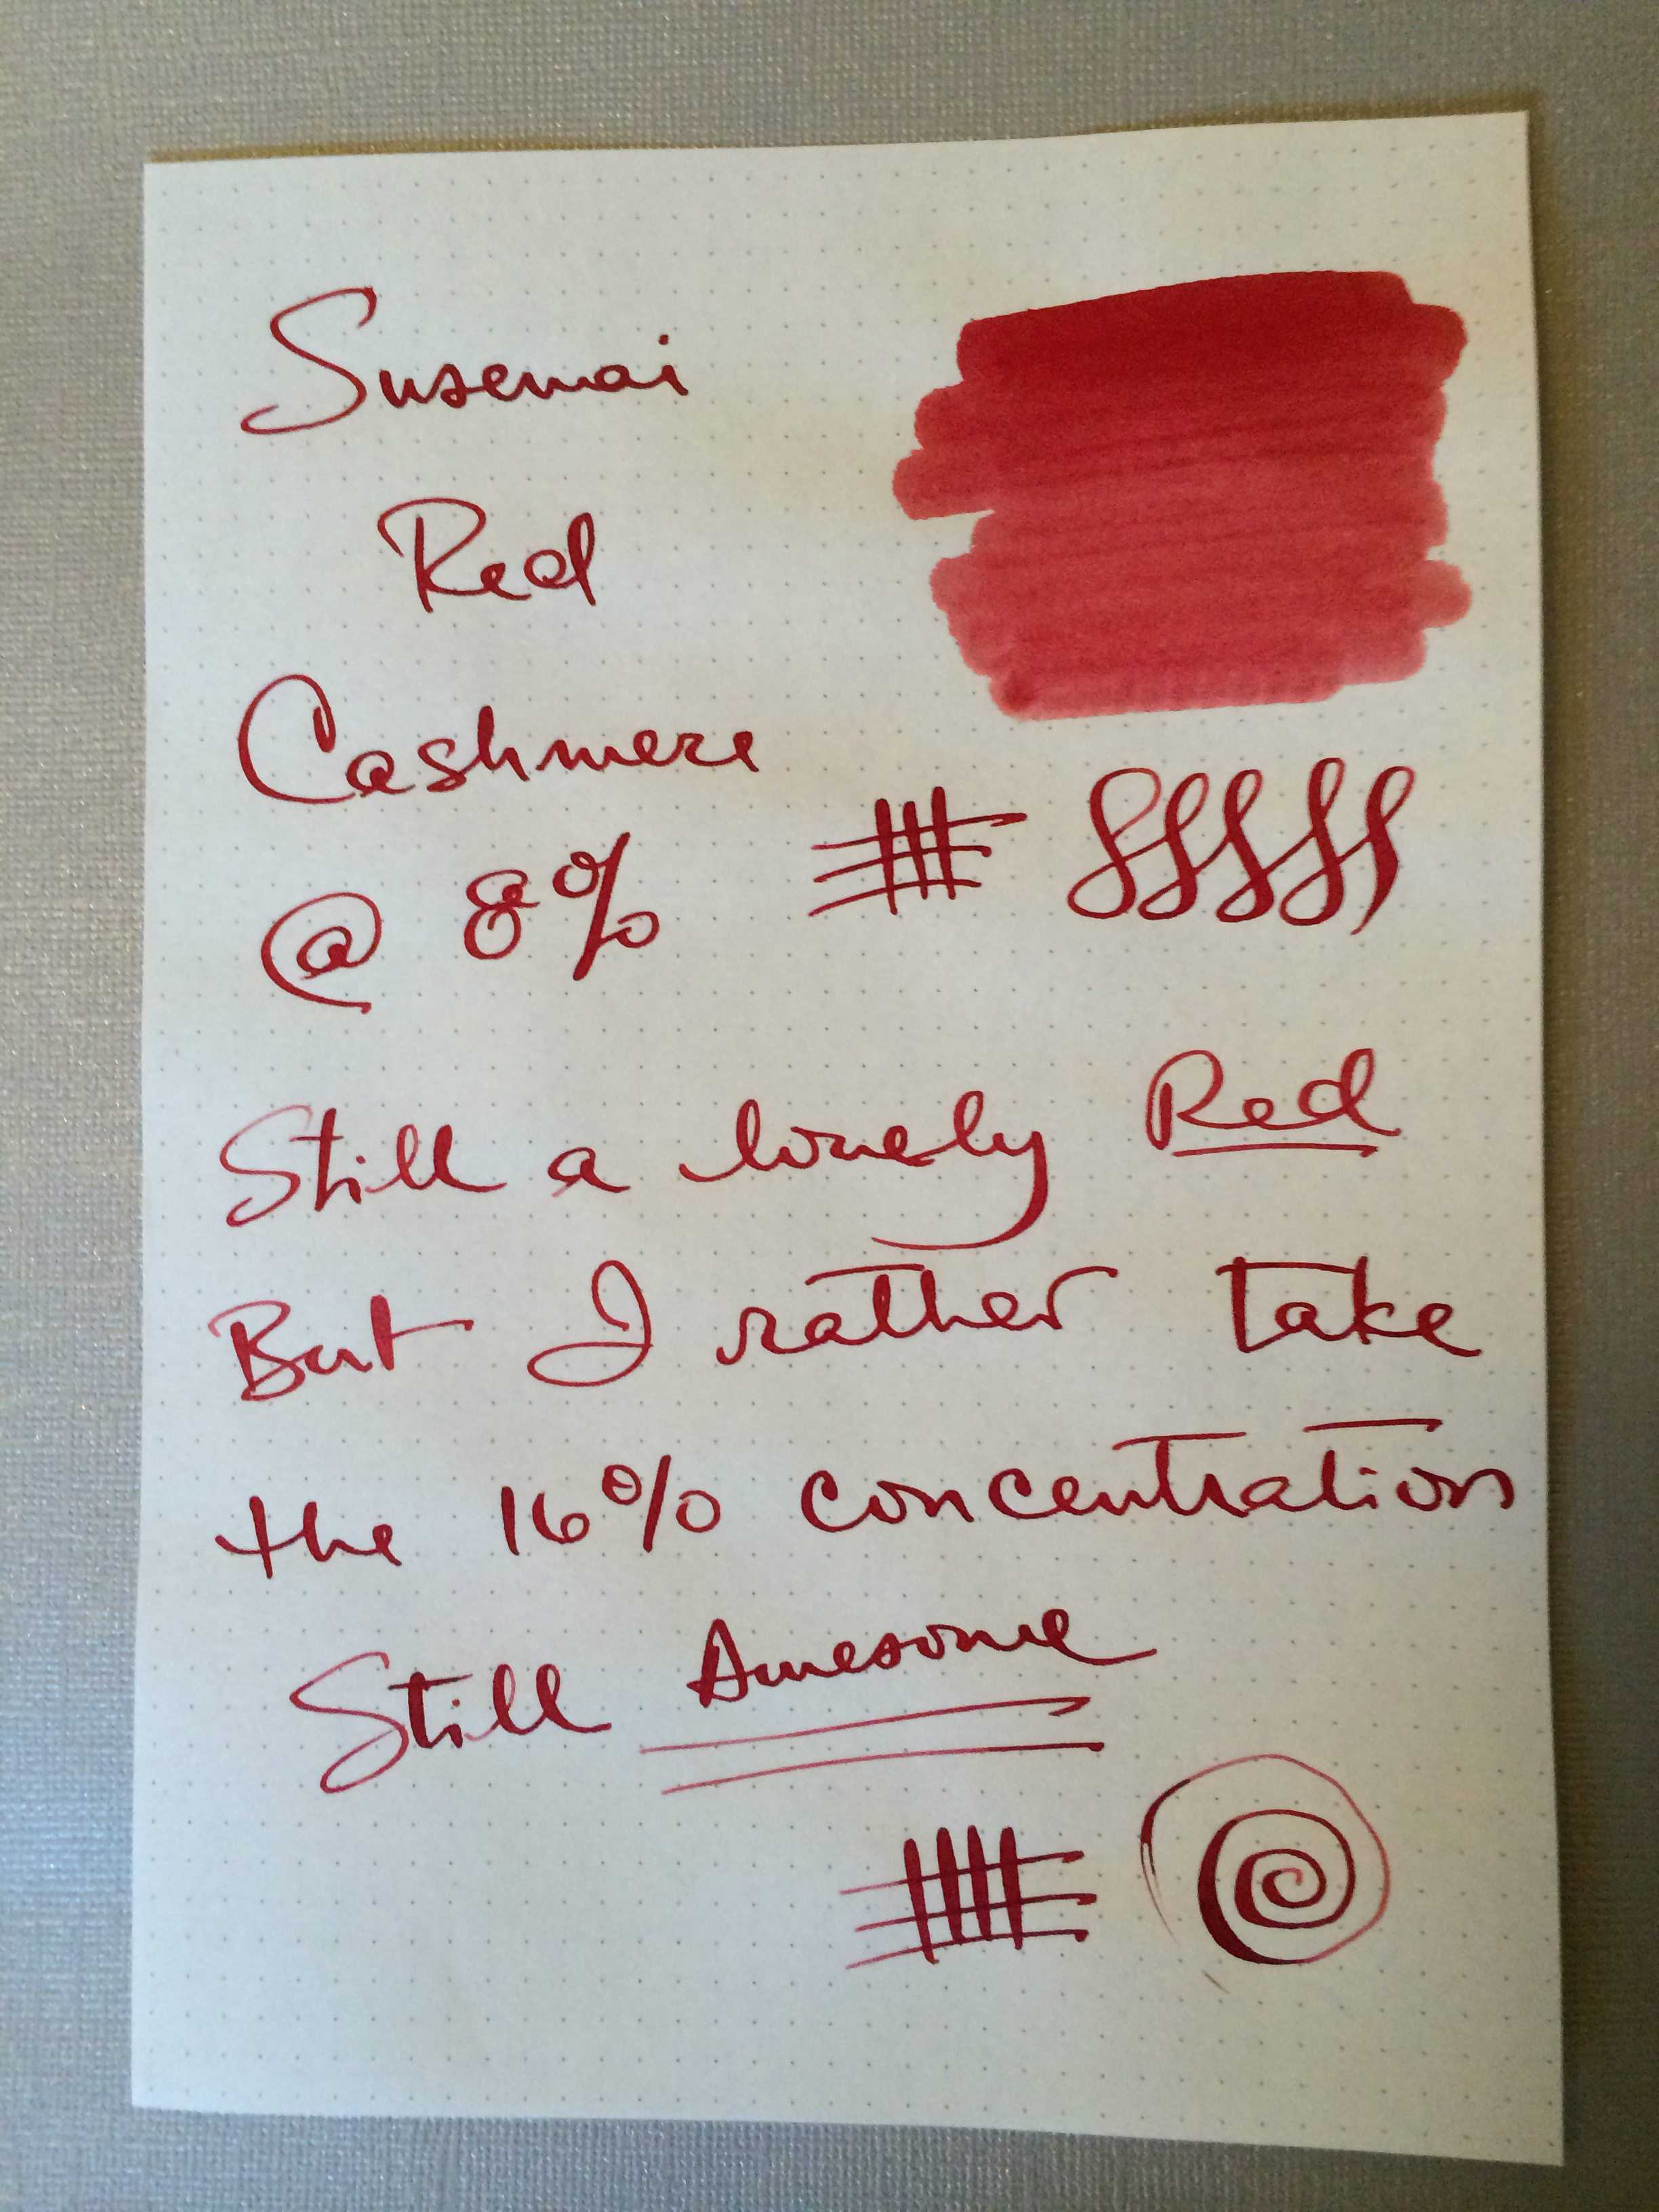 Susemai
Red
Cashmere
@ 8%
Still a lovely Red
But I rather take
the 16% concentration
Still Awesome